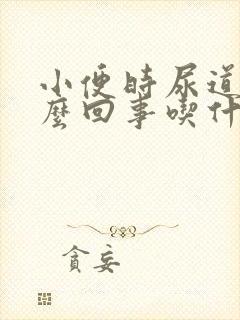 小便时尿道
麼回事喫什
貪妄